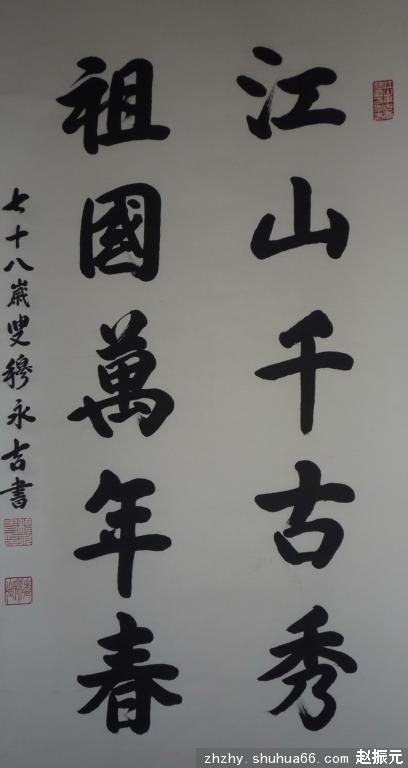 江山千古秀
祖國萬年春
七十八嵗叟穆永吉書
zhzhy.shuhua66.com 赵振元